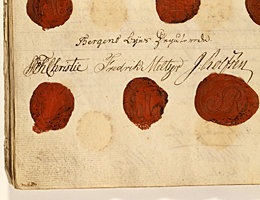 Bergens Byes Deputerede
W.F.K. Christie Fredrik Meltzer J. Rolfsen